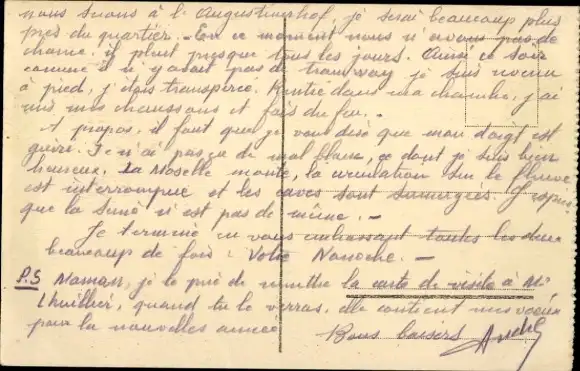 nous serons à l'Augustinerhof, je serai beaucoup plus
près du quartier. En ce moment nous n'avons pas de
chance. il pleut presque tous les jours. Ainsi ce soir
comme il n'y avait pas de tramway je suis revenu
à pied, j'étais transpercé. Rentré dans ma chambre, j'ai
mis mes chaussons et fais du feu.
A propos, il faut que je vous dise que mon doigt est
guéri. Je n'ai pas eu de mal blanc, ce dont je suis bien
heureux. La Moselle monte, la circulation sur le fleuve
est interrompue et les caves sont submergées. J'espère
que la Seine n'est pas de même. -
Je termine en vous embrassant toutes les deux
beaucoup de fois. Votre -
P.S Maman, je te prie de remettre la carte de visite à Mr
Lhuillier, quand tu le verras, elle contient mes voeux
pour la nouvelles année
Bons baisers André